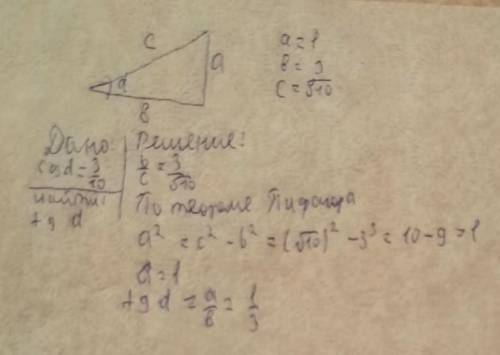 c
a
α
b
a = 1
b = 3
c = √10
Дано:
cos α = 3/√10
найти:
tg α
Решение:
b/c = 3/√10
По теореме Пифагора
a² = c² - b² = (√10)² - 3² = 10 - 9 = 1
a = 1
tg α = a/b = 1/3